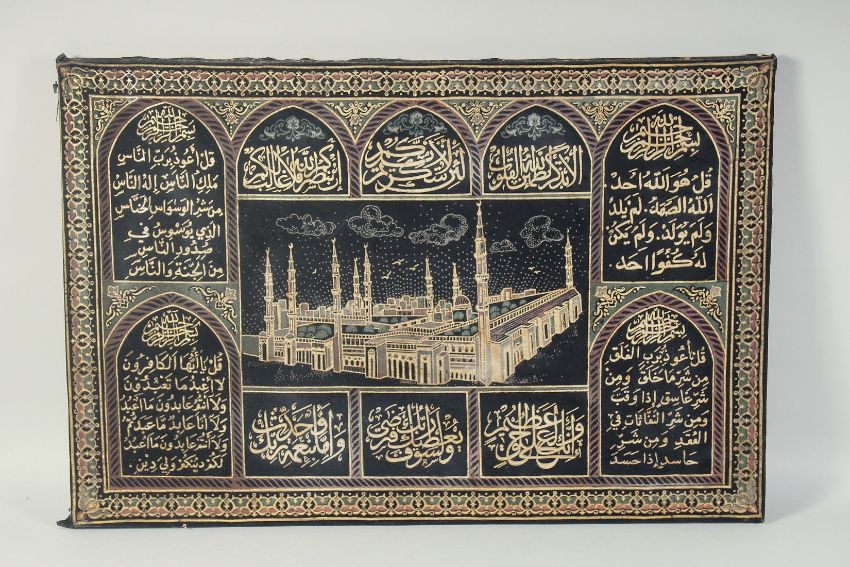 بسم الله الرحمن الرحيم
قل هو الله احد
الله الصمد. لم يلد
ولم يولد. ولم يكن
له كفوا احد
الا بذكر الله تطمئن القلوب
لئن شكرتم لازيدنكم
ان ينصركم الله فلا غالب لكم
بسم الله الرحمن الرحيم
قل أعوذ برب الناس
ملك الناس إله الناس
من شر الوسواس الخناس
الذي يوسوس في
صدور الناس
من الجنة والناس
بسم الله الرحمن الرحيم
قل أعوذ برب الفلق
من شر ما خلق ومن
شر غاسق إذا وقب
ومن شر النفاثات في
العقد ومن شر
حاسد إذا حسد
وانك لعلى خلق عظيم
ولسوف يعطيك ربك فترضى
واما بنعمة ربك فحدث
بسم الله الرحمن الرحيم
قل يا أيها الكافرون
لا اعبد ما تعبدون
ولا انتم عابدون ما اعبد
ولا انا عابد ما عبدتم
ولا انتم عابدون ما اعبد
لكم دينكم ولي دين.